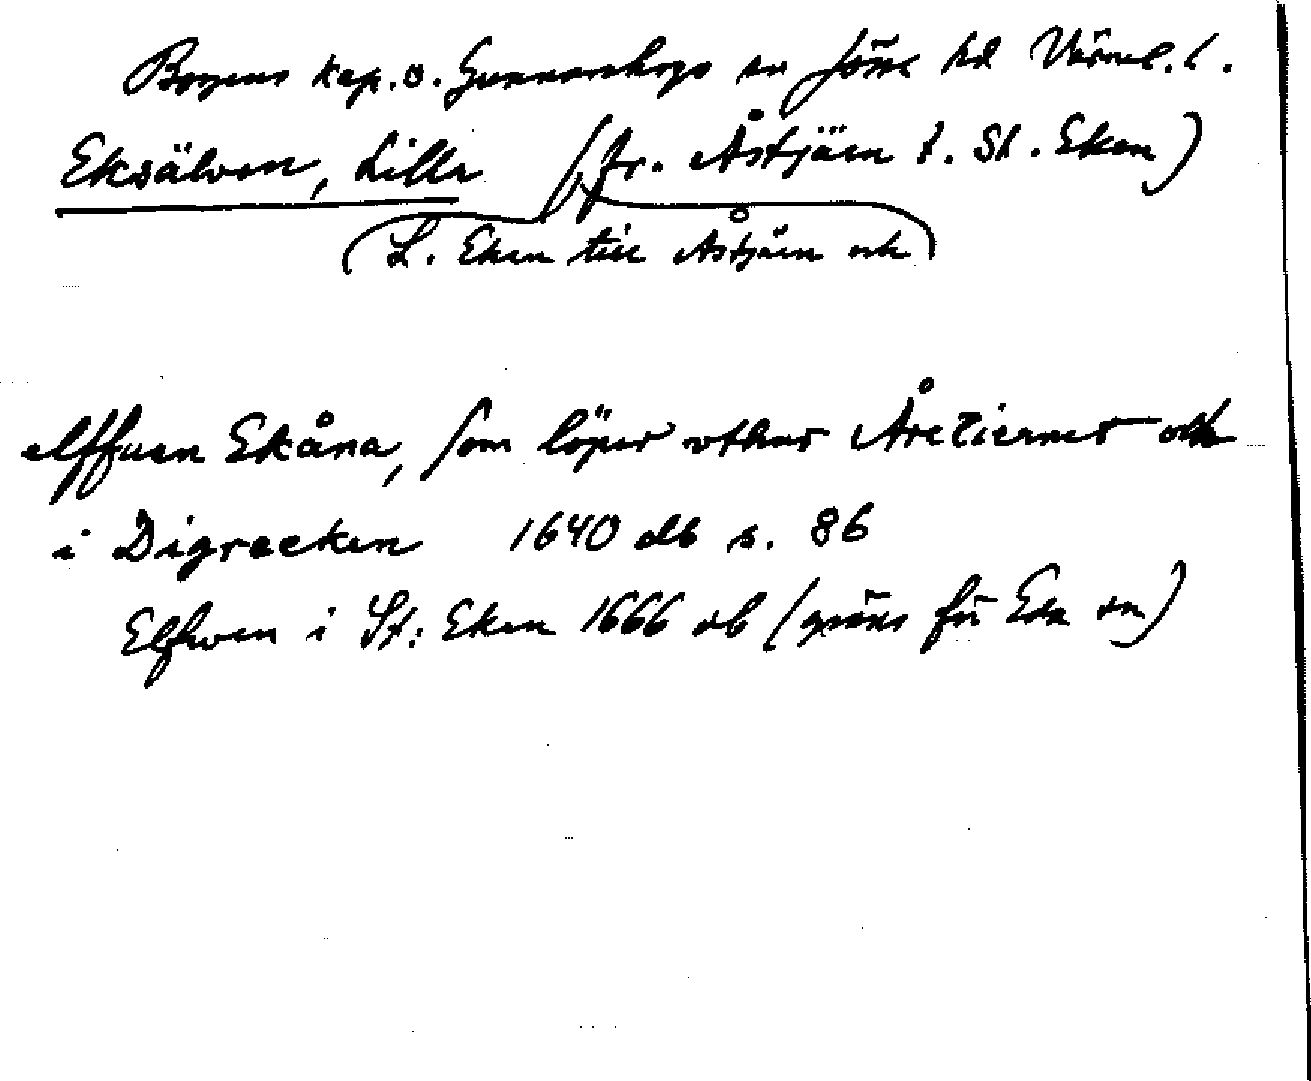 Bogens kap. o. Gunnarskogs sn Jösse hd Värml. l.
Eksälven, Lilla (fr. Åstjärn t. St. Eken)
(L. Eken till Åstjärn och)
elffuen Ekåna, som löper vthur Åretiernet och
i Digreeken 1640 db s. 86
Elfwen i St: Eken 1666 db (gräns för Eda sn)